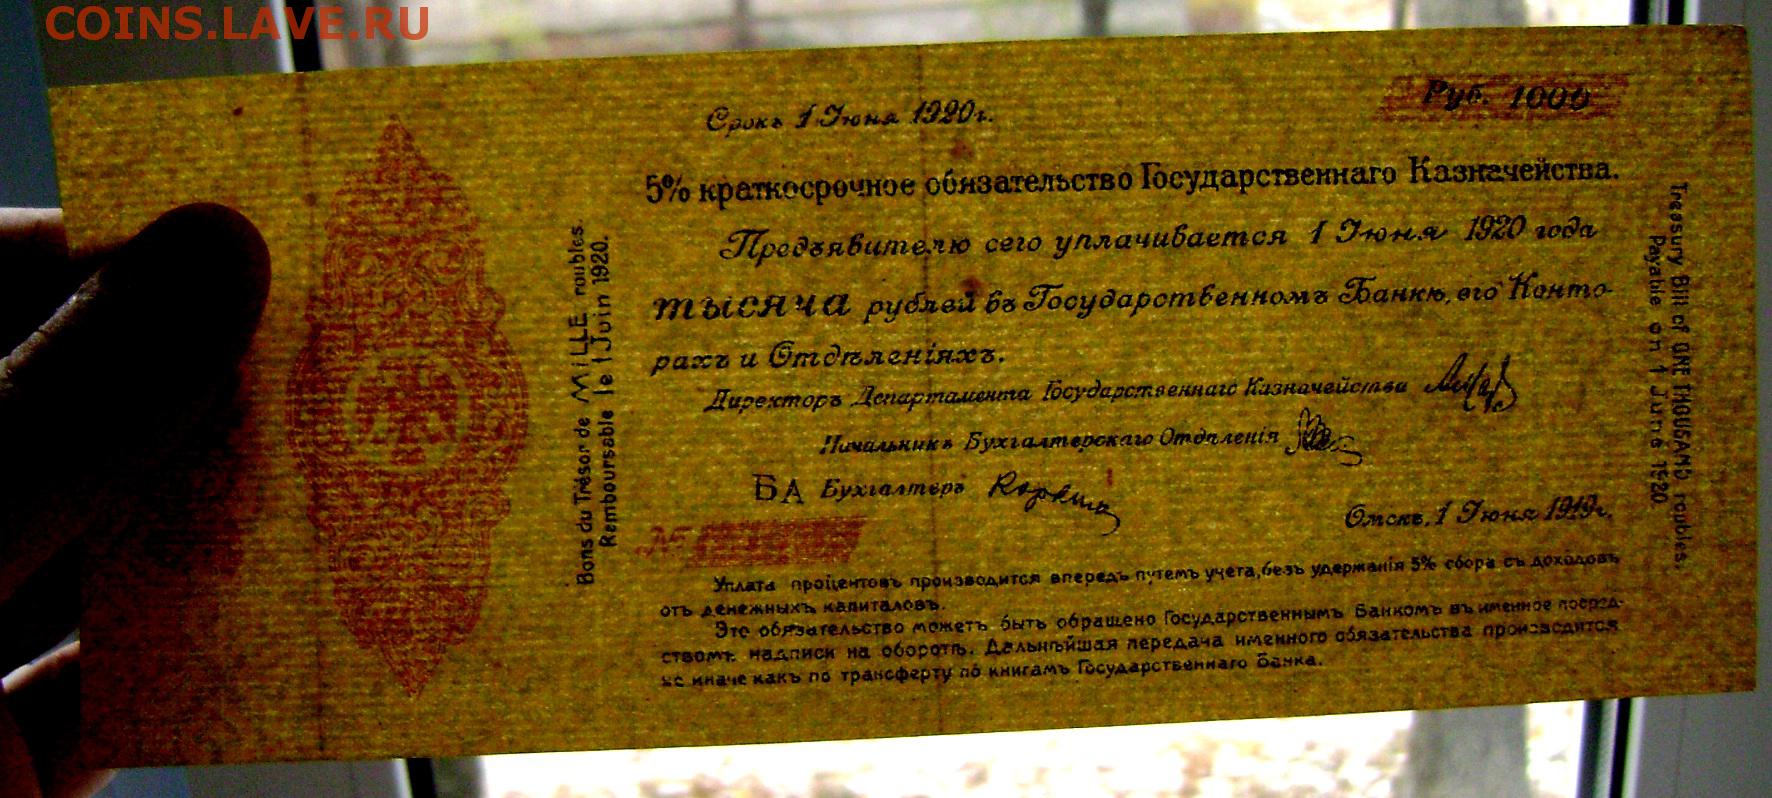 COINS.LAVE.RU
Срокъ 1 Июня 1920г.
Руб. 1000
5% краткосрочное обязательство Государственнаго Казначейства.
Предъявителю сего уплачивается 1 Июня 1920 года
тысяча рублей въ Государственномъ Банкѣ, его Конто-
рахъ и Отдѣленіяхъ.
Директоръ Департамента Государственнаго Казначейства
Начальникъ Бухгалтерскаго Отдѣленія
БА Бухгалтеръ
№
Омскъ, 1 Июня 1919г.
Уплата процентовъ производится впередъ путемъ учета, безъ удержанія 5% сбора съ доходовъ
отъ денежныхъ капиталовъ.
Это обязательство можетъ быть обращено Государственнымъ Банкомъ въ именное посред-
ствомъ надписи на оборотѣ. Дальнѣйшая передача именного обязательства производится
не иначе какъ по трансферту по книгамъ Государственнаго Банка.
Bons du Trésor de MILLE roubles.
Remboursable le 1 Juin 1920.
Treasury Bill of ONE THOUSAND roubles.
Payable on 1 June 1920